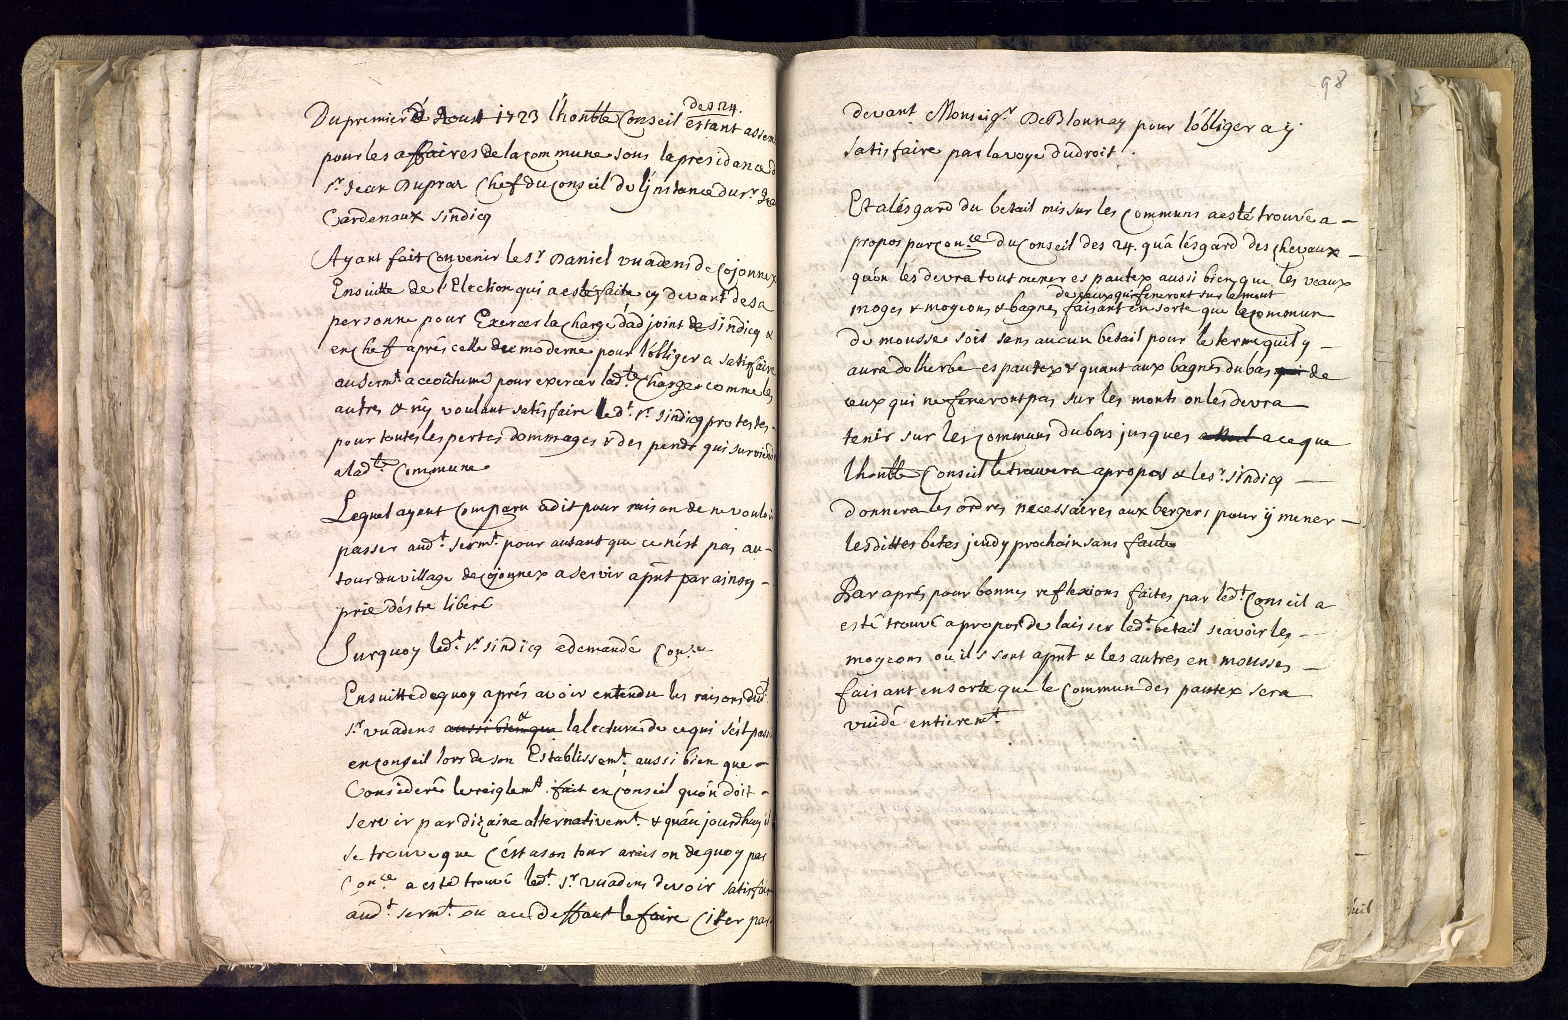 Du premier d'Aoust 1723 l'honble Conseil des 24. estant assem
pour les affaires de la commune sous la presidance d
Sr Jean Dupraz Chef du Conseil de l'jnstance du sr. Jea
Cardenaux sindicq
Ayant fait convenir le Sr. Daniel vuadens de Cojonnex
Ensuitte de l'Election qui a esté faite cy devant de sa
personne pour Exercer la charge d'adjoint de sindicq &
en chef aprés celle du moderne pour l'obliger a satisfaire
au sermt. accoûtumé pour exercer ladte Charge comme les
autres & n'y voulant satisfaire ledt. sr. sindicq proteste
pour toutes les pertes dommages & despends qui surviend
a ladte. Commune
Lequel ayent comparu a dit pour raison de ne vouloir
passer audt. sermt. pour autant que ce n'est pas au-
tour du village de Cojonnex a servir apnt par ainsy -
prie d'éstre liberé
Surquoy ledt. sr. sindicq a demandé Conce
Ensuitte de quoy aprés avoir entendu les raisons dudt
sr. vuadens aussi bien que & la lecture de ce qui s'est passé
en conseil lors de son Establissemt. aussi bien que -
Considerér le reiglemt. fait en Conseil qu'on doit -
servir par dizaine alternativemt. & qu'au jourdhuy il
se trouve que c'est a son tour a raison de quoy par
Conce a esté trouvé ledt. sr. vuadens devoir satisfaire
audt. sermt. ou a ce deffaut le faire citer par
98
devant Monseigr De Blonnay pour l'obliger a y
satisfaire par la voye du droit.
Et a l'ésgard du betail mis sur les communs a esté trouvé a -
propos par Conce du Conseil des 24. qu'a l'ésgard des chevaux -
qu'on les devra tout mener es pautex aussi bien que les veaux
de ceux qui feneront sur le mont
moges & mogeons & bagnes faisant en sorte que le commun
de mousse soit sans aucun betail pour le terme quil y -
aura de l'herbe es pautex & quant aux bagnes du bas qui de
ceux qui ne feneront pas sur les monts on les devra
tenir sur les communs du bas jusques a ce que
lhonble Conseil le trouvera a propos & le sr. sindicq -
donnera les ordres necessaires aux bergers pour y mener -
lesdittes betes jeudy prochain sans faute
Par aprés pour bonnes reflexions faites par ledt. Conseil a
esté trouvé a propos de laisser ledt. bétail scavoir les -
mogeons ou ils sont apnt & les autres en mousses -
faisant en sorte que le commun des pautex sera
vuidé entieremt.